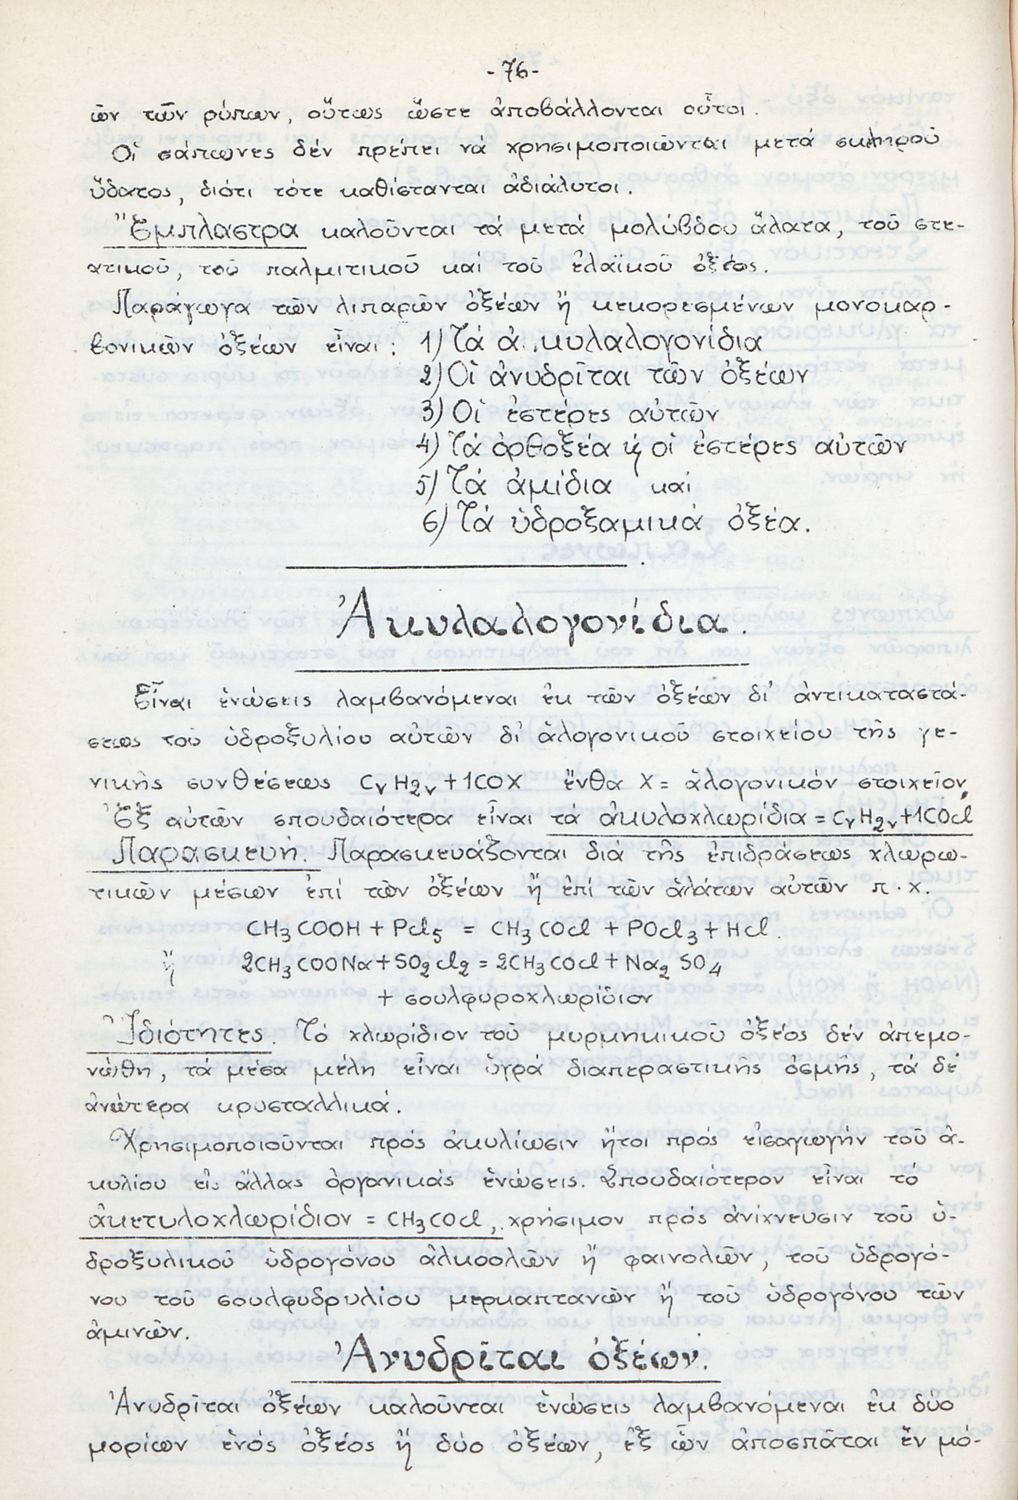 -76-
ὧν τῶν ρύπων, οὕτως ὥστε ἀποβάλλονται οὗτοι.
Οἱ σάπωνες δέν πρέπει νά χρησιμοποιῶνται μετά σκληροῦ
ὕδατος, διότι τότε καθίστανται ἀδιάλυτοι.
Ἔμπλαστρα καλοῦνται τά μετά μολύβδου ἅλατα, τοῦ στε-
ατικοῦ, τοῦ παλμιτικοῦ καί τοῦ ἐλαϊκοῦ ὀξέος.
Παράγωγα τῶν λιπαρῶν ὀξέων ἤ κεκορεσμένων μονοκαρ-
βονικῶν ὀξέων εἶναι: 1) Τά ἀκυλαλογονίδια
2) Οἱ ἀνυδρῖται τῶν ὀξέων
3) Οἱ ἐστέρες αὐτῶν
4) Τά ὀρθοξέα ἤ οἱ ἐστέρες αὐτῶν
5) Τά ἀμίδια καί
6) Τά ὑδροξαμικά ὀξέα.
Ἀκυλαλογονίδια.
Εἶναι ἑνώσεις λαμβανόμεναι ἐκ τῶν ὀξέων δι' ἀντικαταστά-
σεως τοῦ ὑδροξυλίου αὐτῶν δι' ἁλογονικοῦ στοιχείου τῆς γε-
νικῆς συνθέσεως CνH2ν+1COX ἔνθα X= ἁλογονικόν στοιχεῖον.
Ἐξ αὐτῶν σπουδαιότερα εἶναι τα ἀκυλοχλωρίδια = CνH2ν+1COCl
Παρασκευή. Παρασκευάζονται δια τῆς ἐπιδράσεως χλωρω-
τικῶν μέσων ἐπί τῶν ὀξέων ἤ ἐπί τῶν αλάτων αὐτῶν π.χ.
CH3COOH + PCl5 = CH3COCl + POCl3 + HCl.
ἤ 2CH3COONa + SO2Cl2 = 2CH3COCl + Na2SO4
+ σουλφυροχλωρίδιον
Ἰδιότητες. Τό χλωρίδιον τοῦ μυρμηκικοῦ ὀξέος δέν ἀπεμο-
νώθη, τά μέσα μέλη εἶναι ὑγρά διαπεραστικῆς ὀσμῆς, τά δέ
ἀνώτερα κρυσταλλικά.
Χρησιμοποιοῦνται πρός ἀκυλίωσιν ἤτοι πρός εἰσαγωγήν τοῦ ἀ-
κυλίου εἰς ἄλλας ὀργανικάς ἑνώσεις. Σπουδαιότερον εἶναι τό
ἀκετυλοχλωρίδιον = CH3COCl, χρήσιμον πρός ἀνίχνευσιν τοῦ ὑ-
δροξυλικοῦ ὑδρογόνου ἀλκοολῶν ἤ φαινολῶν, τοῦ ὑδρογό-
νου τοῦ σουλφυδρυλίου μερκαπτανῶν ἤ τοῦ ὑδρογόνου τῶν
ἀμινῶν.
Ἀνυδρῖται ὀξέων.
Ἀνυδρῖται ὀξέων καλοῦνται ἑνώσεις λαμβανόμεναι ἐκ δύο
μορίων ἑνός ὀξέος ἤ δύο ὀξέων, ἐξ ὧν ἀποσπᾶται ἕν μό-